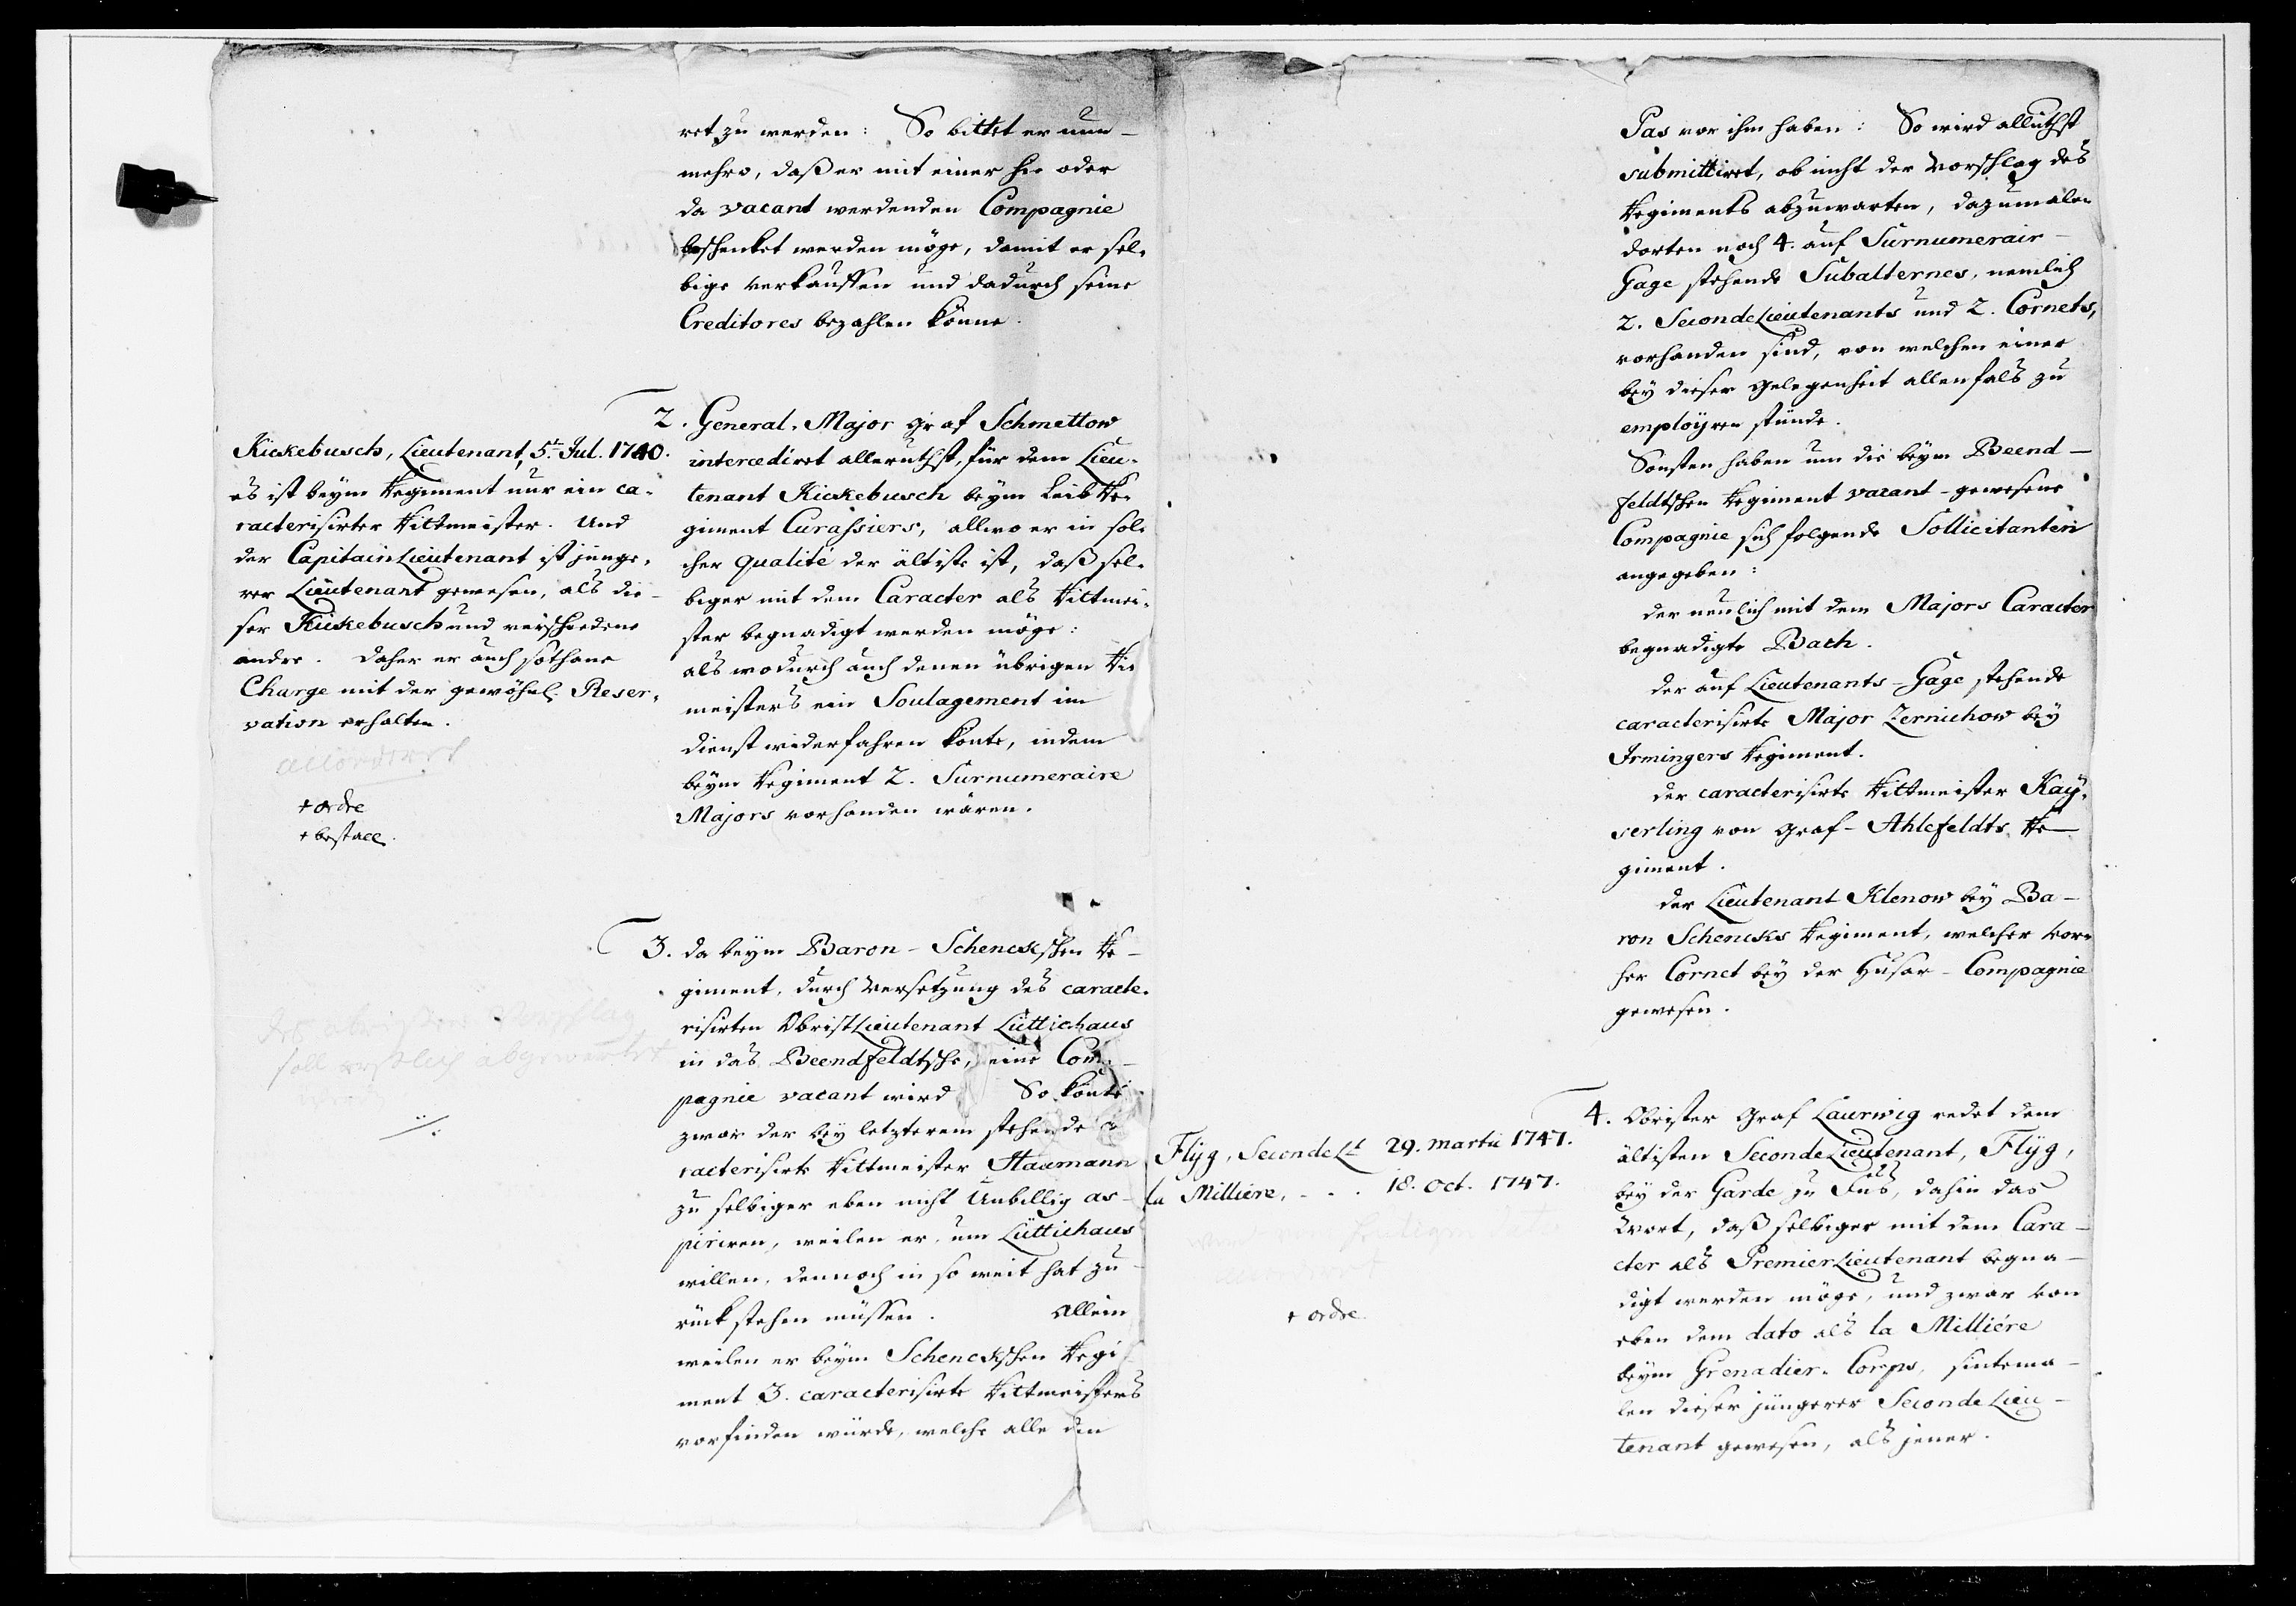 ret zu werden: So bittet er nun-
mehro, daß er mit einer hie oder
da vacant werdenden Compagnie
beschenket werden möge, damit er sel-
bige verkauffen und dadurch seine
Creditores bezahlen könne.
2. General-Major Graf Schmettow
intercediret allerunthst, für dem Lieu-
tenant Kickebusch beym Leib Re-
giment Curassiers, allwo er in sol-
cher qualité der älteste ist, daß sel-
biger mit dem Caracter als Rittmei-
ster begnadigt werden möge:
als wodurch auch denen übrigen Ritt
meisters ein Soulagement im
Dienst widerfahren könte, indem
beym Regiment 2. Surnumeraire
Majors vorhanden wären.
Kickebusch, Lieutenant, 5t. Jul. 1740.
es ist beym Regiment nur ein ca-
racterisirter Rittmeister. Und
der CapitainLieutenant ist jünge-
rer Lieutenant gewesen, als die-
ser Kickebusch und verschiedene
andre. Daher er auch sothane
Charge mit der gewöhnl. Reser-
vation erhalten.
accordirt
+ ordre
+ bestall.
3. Da beym Baron-Schenckschen Re-
giment, durch Versetzung des caracte-
risirten ObristLieutenant Lüttichaus
in das Beenfeldtsche, eine Com-
pagnie vacant wird So könte
zwar der bey letzterem stehende ca
racterisirte Rittmeister Haumann
zu selbiger eben nicht Unbillig as-
piriren, weilen er, um Lüttichaus
willen, dennoch in so weit hat zu-
rück stehen müssen. Allein
weilen er beym Schenckschen Regi-
ment 3. caracterisirte Rittmeisters
vorfinden würde, welche alle den
Vorschlag
soll erstlich abgewartet
./.
Pas vor ihm haben: So wird allunthst
submittiret, ob nicht der Vorschlag des
Regiments abzuwarten, dazumalen
dorten noch 4. auf Surnumerair-
Gage stehende Subalternes, nemlich
2. SecondeLieutenants und 2. Cornets,
vorhanden sind, von welchen einer
bey dieser Gelegenheit allenfals zu
employren stünde.
Sonsten haben um die beym Beend-
feldtschen Regiment vacant-gewesene
Compagnie sich folgende Sollicitanten
angegeben:
der neulich mit dem Majors Caracter
begnadigte Bach.
der auf Lieutenants-Gage stehende
caracterisirte Major Zernichow bey
Irmingers Regiment.
der caracterisirte Rittmeister Kay-
serling von Graf-Ahlefeldts Re-
giment.
der Lieutenant Klenow bey Ba-
ron Schencks Regiment, welcher vor-
her Cornet bey der Husar-Compagnie
gewesen.
4. Obrister Graf Laurwig redet dem
ältisten SecondeLieutenant, Flyg,
bey der Garde zu Fus, dahin das
Wort, daß selbiger mit dem Cara-
cter als PremierLieutenant begna-
digt werden möge, und zwar von
eben dem dato als la Milliére
beym Grenadier-Corps, sintema-
len dieser jüngerer Seconde Lieu-
tenant gewesen, als jener.
Flyg, Seconde Lt 29. martii 1747.
la Milliere, - . . 18. oct. 1747.
+ ordre.